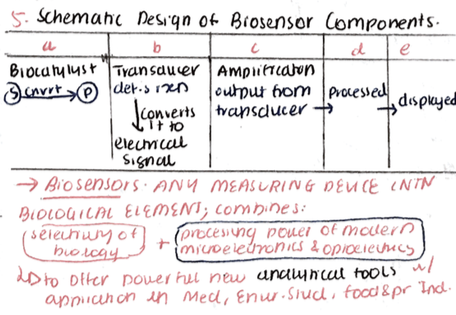 5. Schematic Design of Biosensor Components.
a b c d e
Biocatalyst Transducer Amplification
(S) cnvrt → (P) det.s rxn output from → processed → displayed
↓ converts transducer
it to
electrical
signal
→ Biosensors. ANY MEASURING DEVICE CNTN
BIOLOGICAL ELEMENT; combines:
selectivity of + processing power of modern
biology microelectronics & optoelectncs
↳ to offer powerful new analytical tools w/
application in Med, Envr. Stud, food & pr Ind.